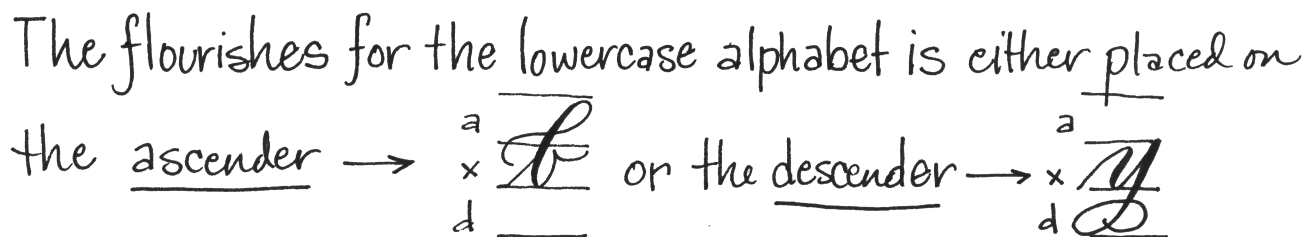 The flourishes for the lowercase alphabet is either placed on
the ascender → a x d b or the descender → a x d y